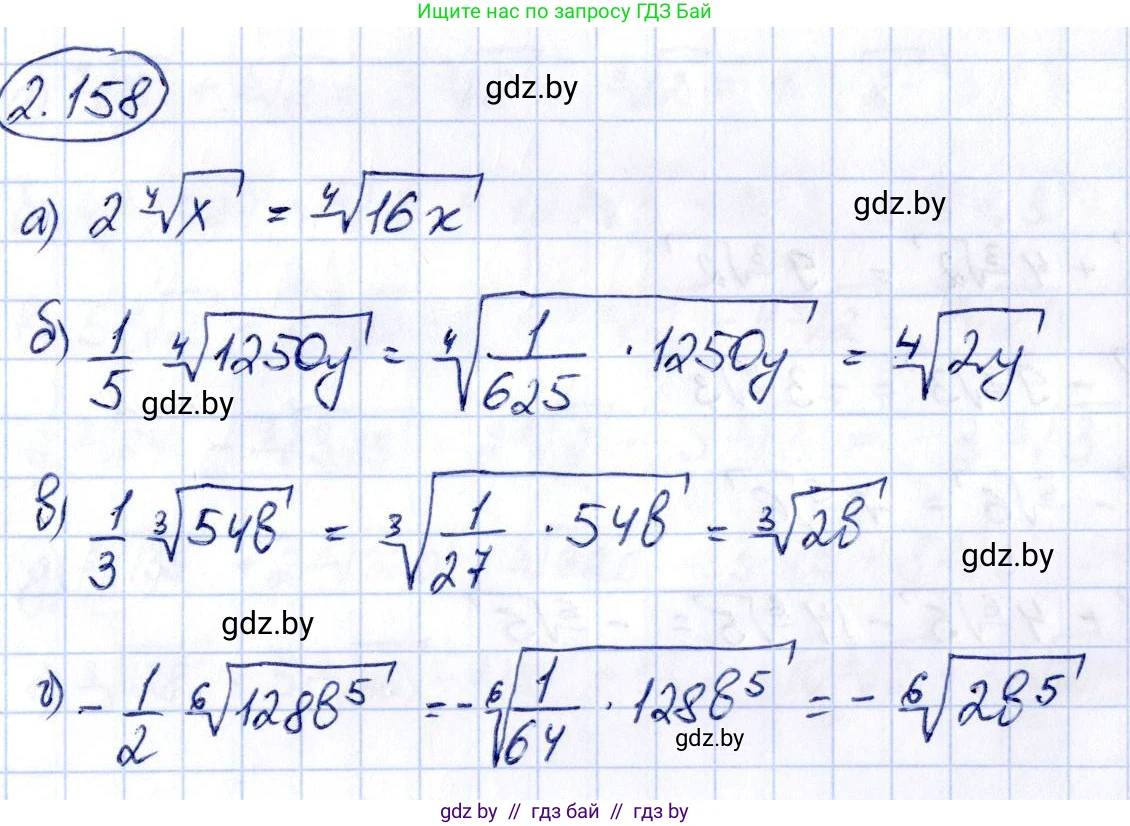 Ищите нас по запросу ГДЗ Бай
2.158
gdz.by
а) 2 ⁴√x = ⁴√16x
gdz.by
б) 1/5 ⁴√1250y = ⁴√(1/625 · 1250y) = ⁴√2y
gdz.by
в) 1/3 ³√54b = ³√(1/27 · 54b) = ³√2b
gdz.by
gdz.by
г) - 1/2 ⁶√128b⁵ = - ⁶√(1/64 · 128b⁵) = - ⁶√2b⁵
gdz.by
gdz.by // гдз бай // гдз by